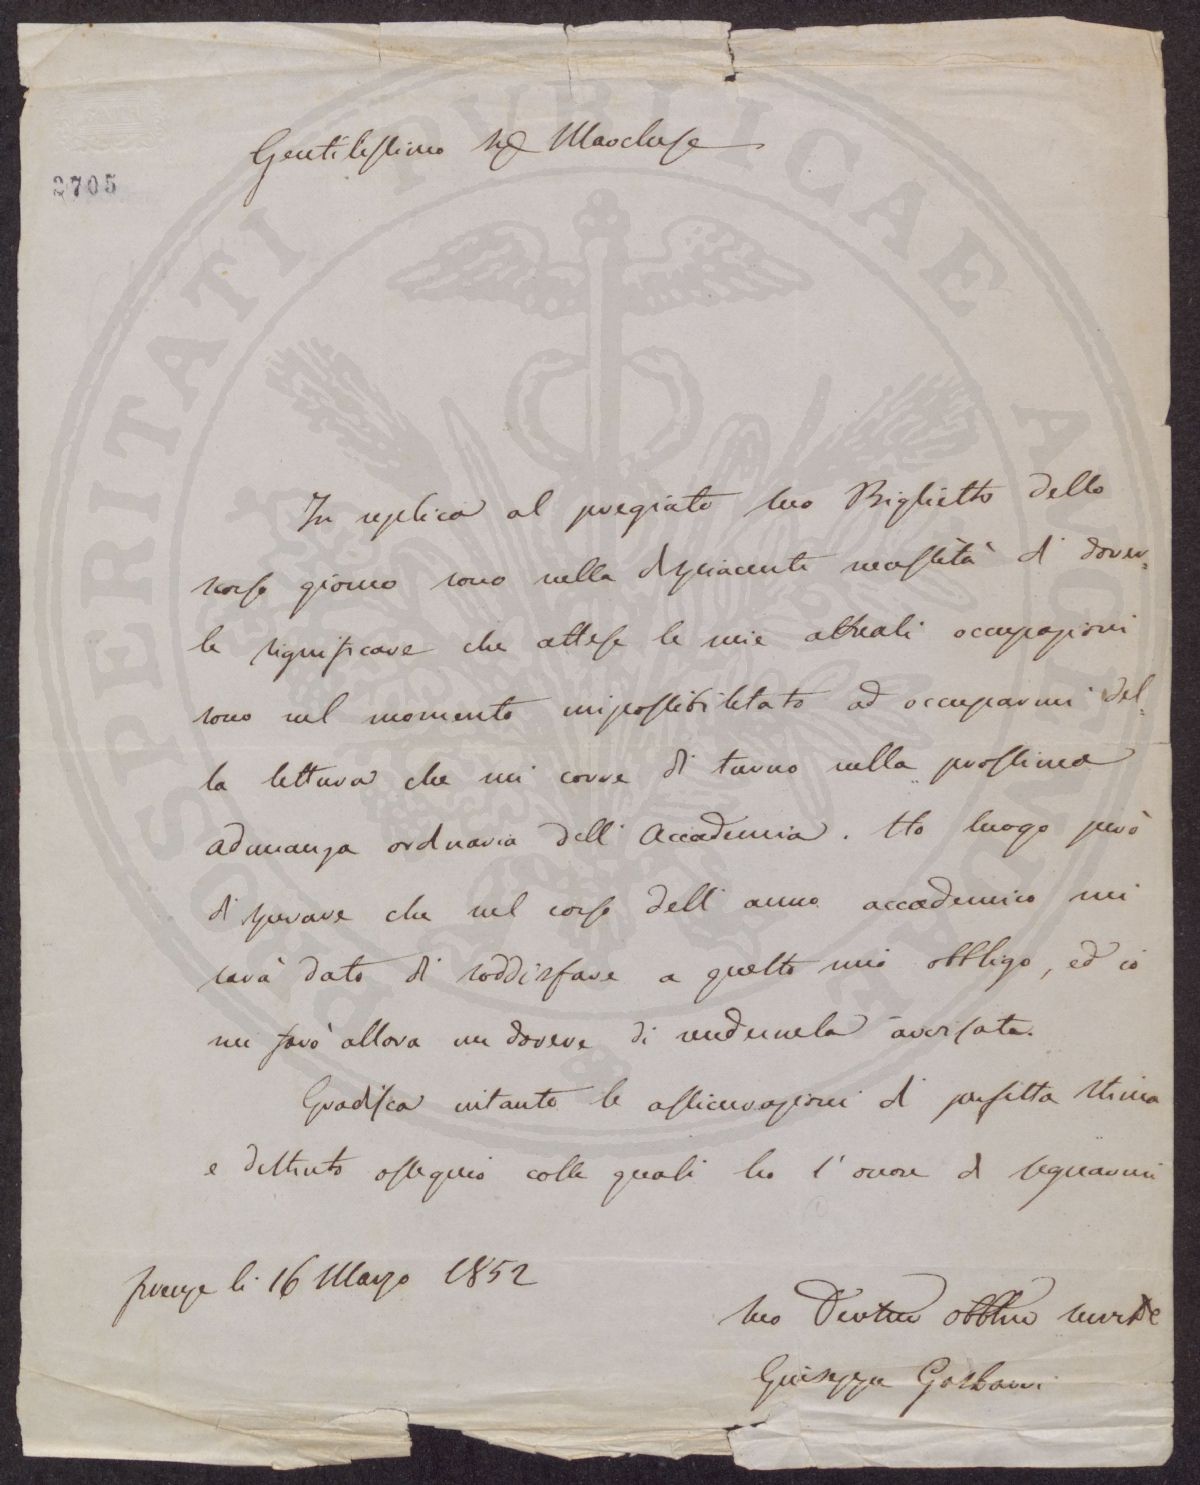 Gentilissimo Sig Marchese
2705
In replica al pregiato suo Biglietto dello
scorso giorno sono nella dispiacente necessità di dover-
le significare che attese le mie attuali occupazioni
sono nel momento impossibilitato ad occuparmi del-
la lettura che mi corre di turno nella prossima
adunanza ordinaria dell' Accademia. Ho luogo però
di sperare che nel corso dell' anno accademico mi
sarà dato di soddisfare a questo mio obbligo, ed io
mi farò allora un dovere di rendernela avvisata.
Gradisca intanto le assicurazioni di perfetta stima
e distinto ossequio colle quali ho l' onore di segnarmi
Firenze li 16 Marzo 1852
Suo Devmo obblmo
Giuseppe
PROSPERITATI PVBLICAE AVGENDAE